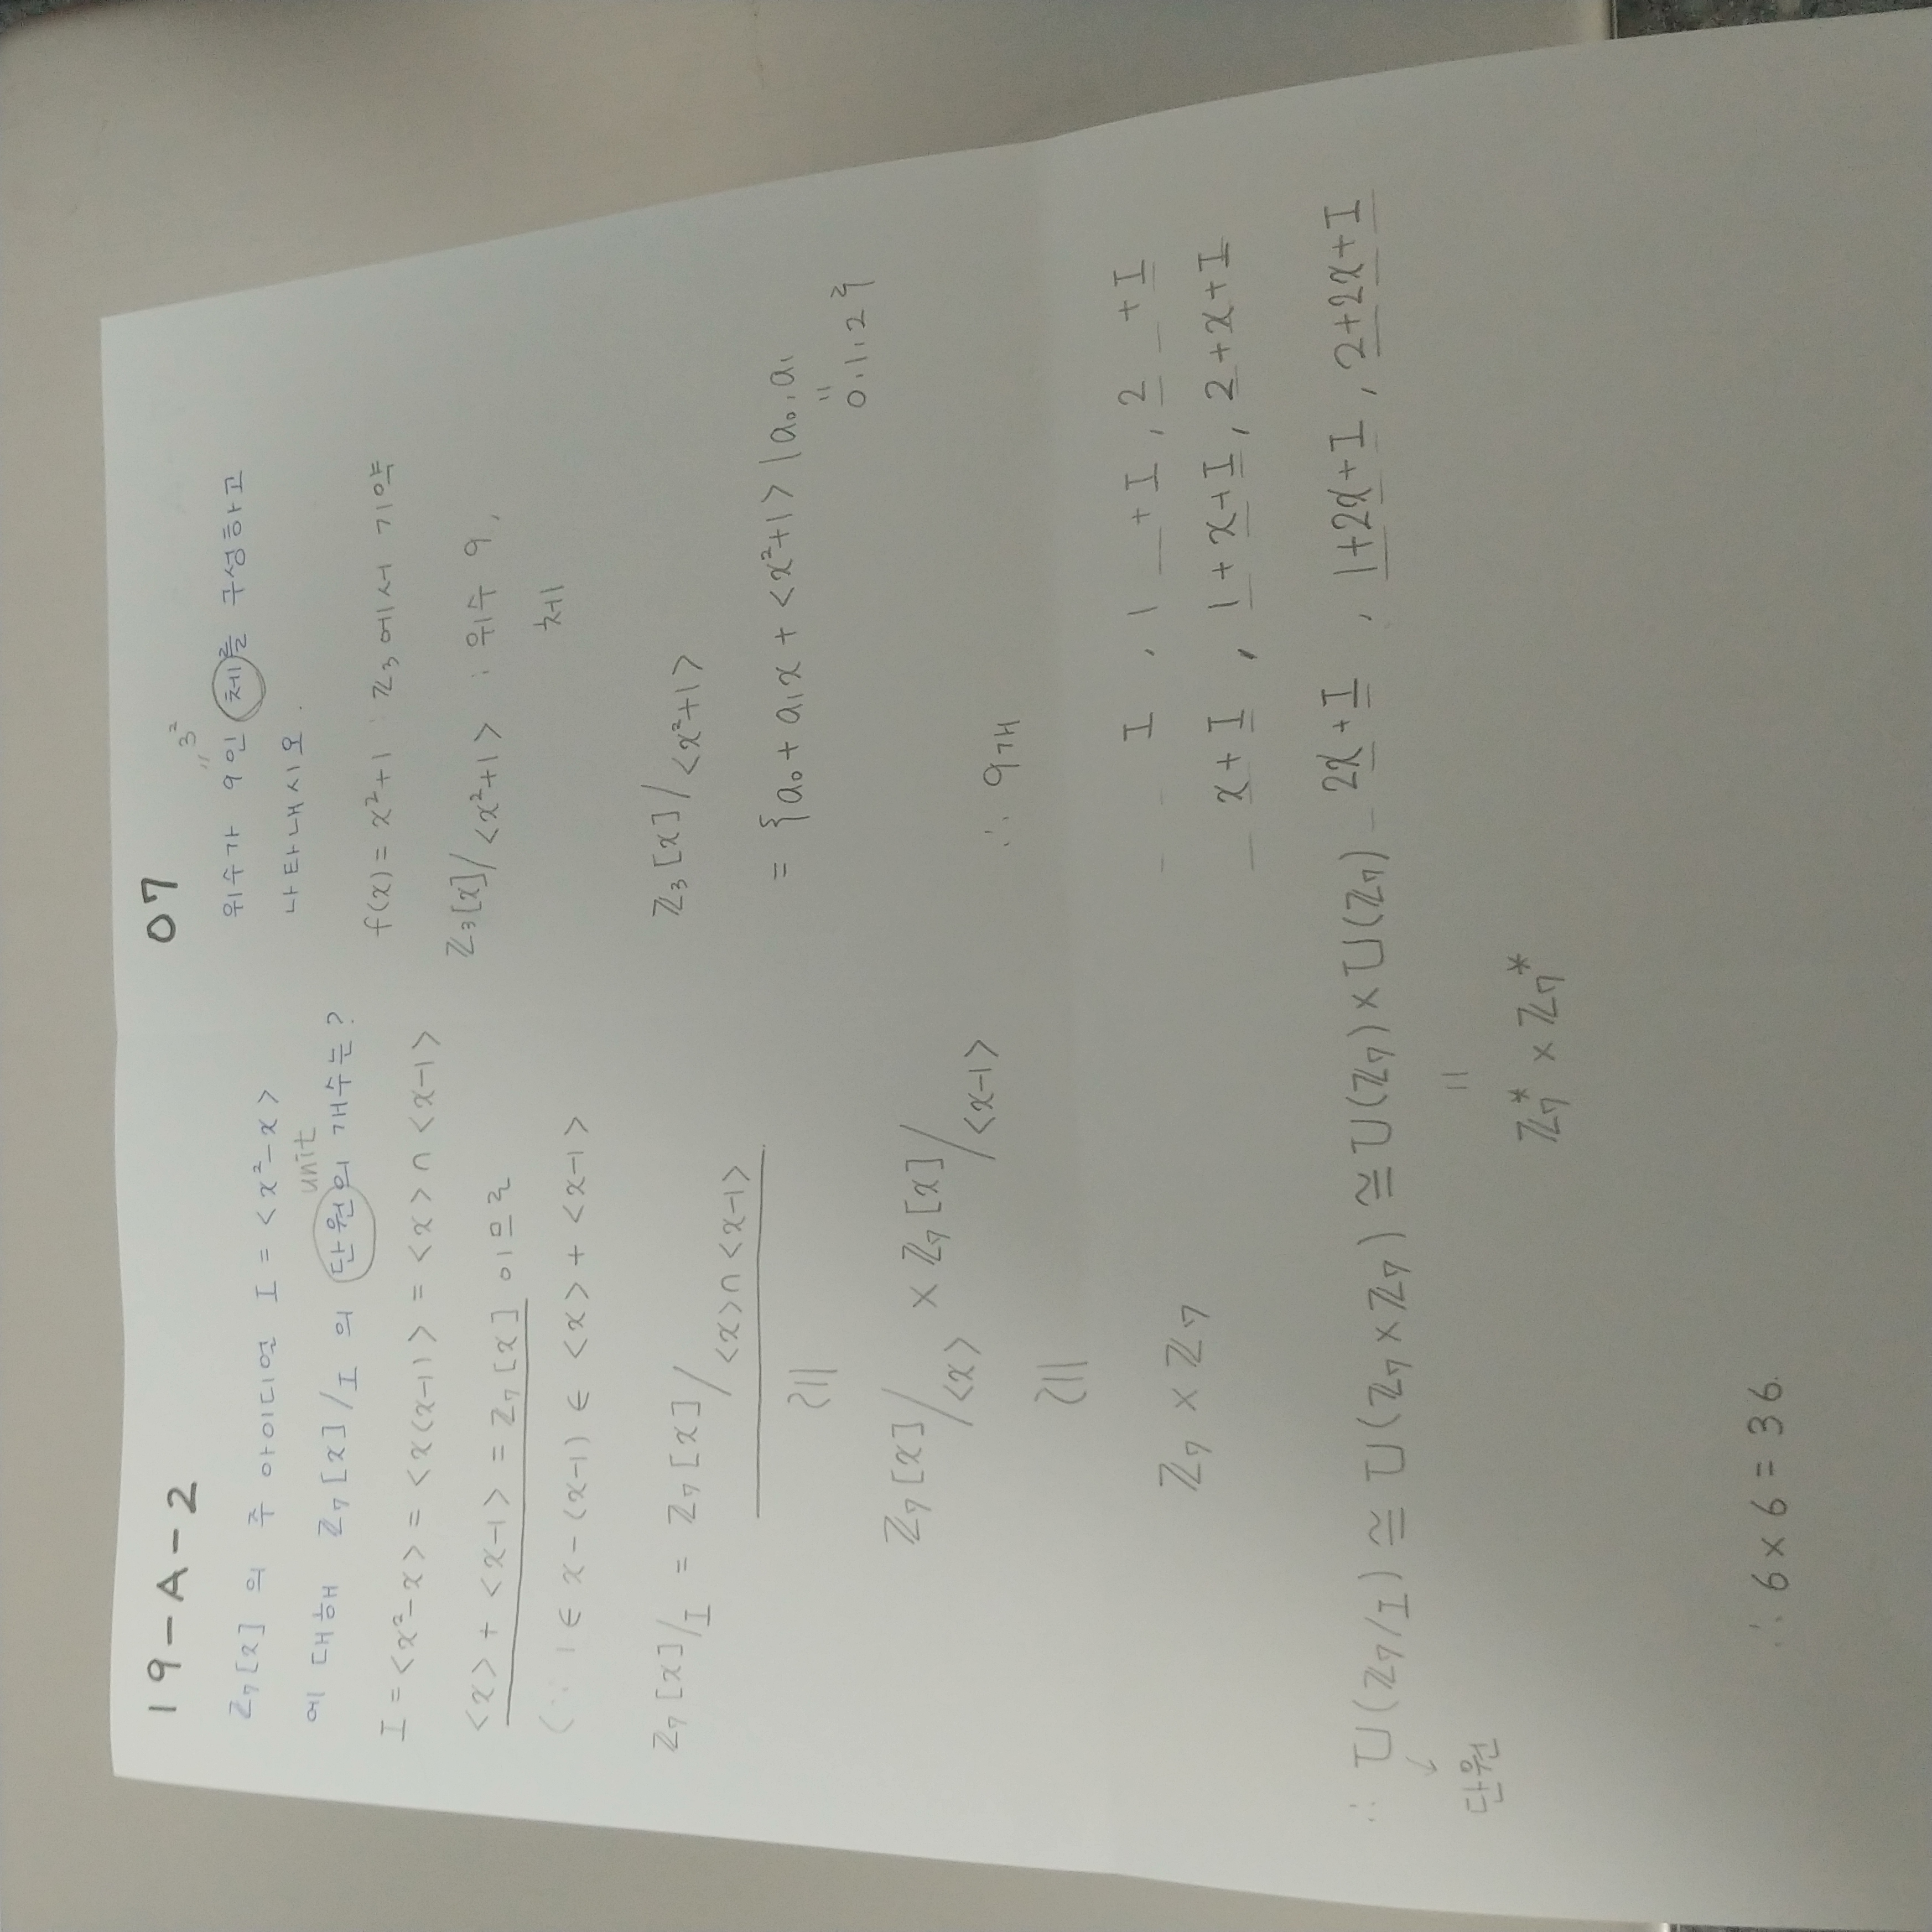 19-A-2
Z₇[x] 의 주 아이디얼 I = <x²-x>
에 대해 Z₇[x]/I 의 단원의 개수는?
unit
I = <x²-x> = <x(x-1)> = <x> ∩ <x-1>
<x> + <x-1> = Z₇[x] 이므로
(∵ 1 ∈ x-(x-1) ∈ <x> + <x-1>
Z₇[x]/I = Z₇[x]/<x>∩<x-1>
≅
Z₇[x]/<x> × Z₇[x]/<x-1>
≅
Z₇ × Z₇
∴ U(Z₇/I) ≅ U(Z₇×Z₇) ≅ U(Z₇)×U(Z₇)
↓
단원
=
Z₇* × Z₇*
∴ 6×6 = 36.
07
= 3²
위수가 9인 체를 구성하고
나타내시오.
f(x) = x²+1 : Z₃에서 기약
Z₃[x]/<x²+1> : 위수 9,
체
Z₃[x]/<x²+1>
= {a₀ + a₁x + <x²+1> | a₀, a₁
=
0,1,2}
∴ 9개
I , 1 + I, 2 + I
x+I , 1+x+I, 2+x+I
2x+I , 1+2x+I, 2+2x+I